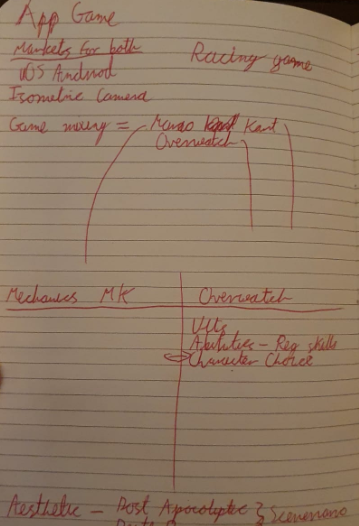 App Game
Markets for both
iOS Android
Racing game
Isometric Camera
Game mixing = Mario Kart
Overwatch
Mechanics MK
Overwatch
Ults
Abilities - Reg skills
Character Choice
Aesthetic - Post Apocolyptic } Scenerons